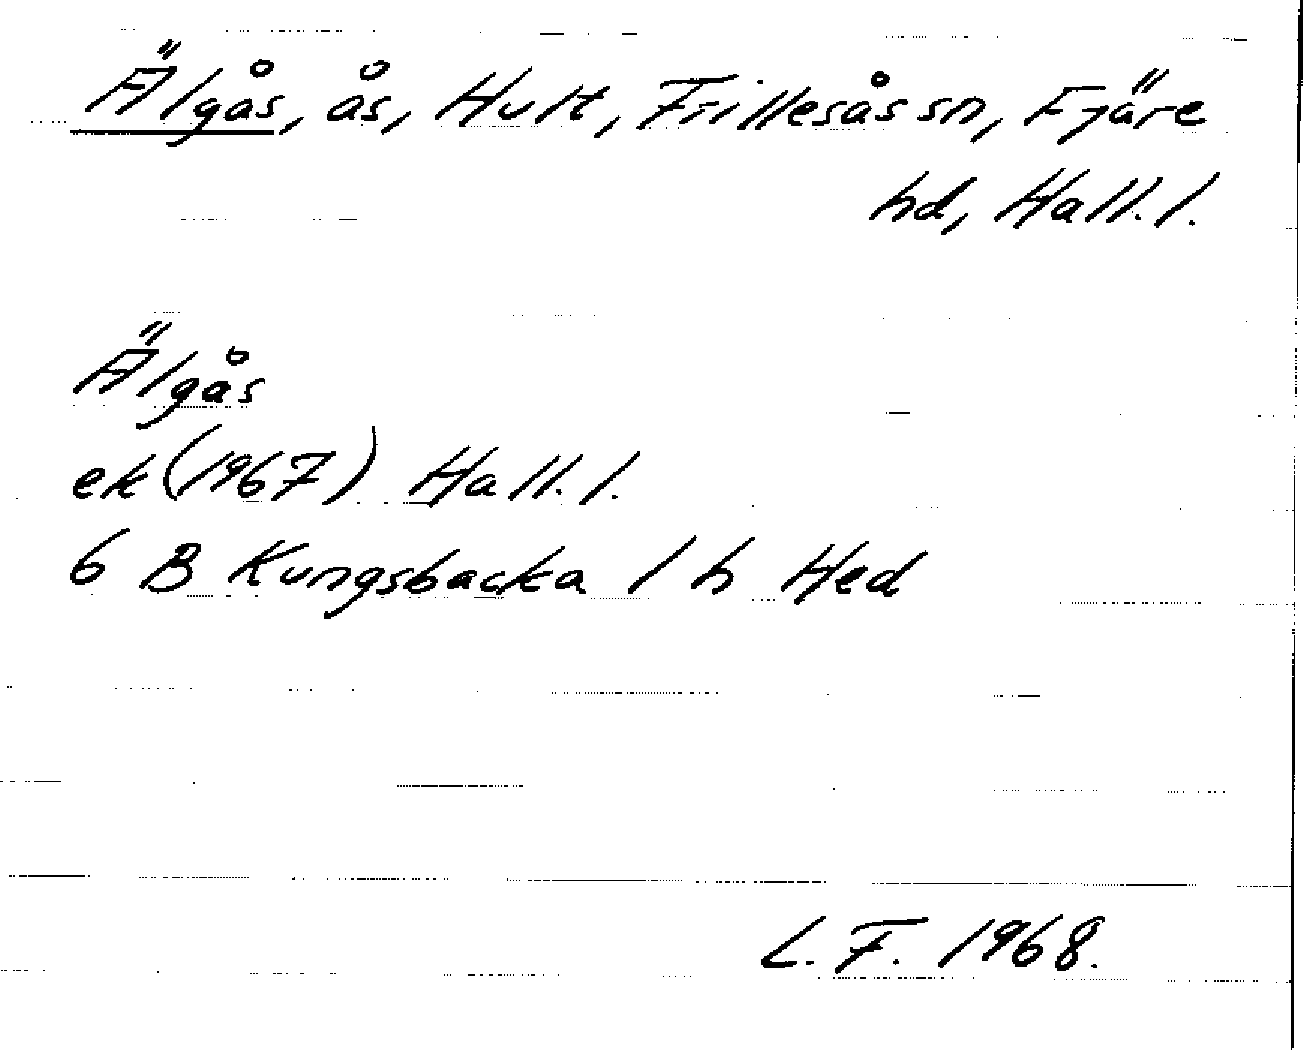 Älgås, ås, Hult, Frillesås sn, Fjäre
hd, Hall. l.
Älgås
ek (1967) Hall. l.
6 B Kungsbacka 1 h Hed
L. F. 1968.